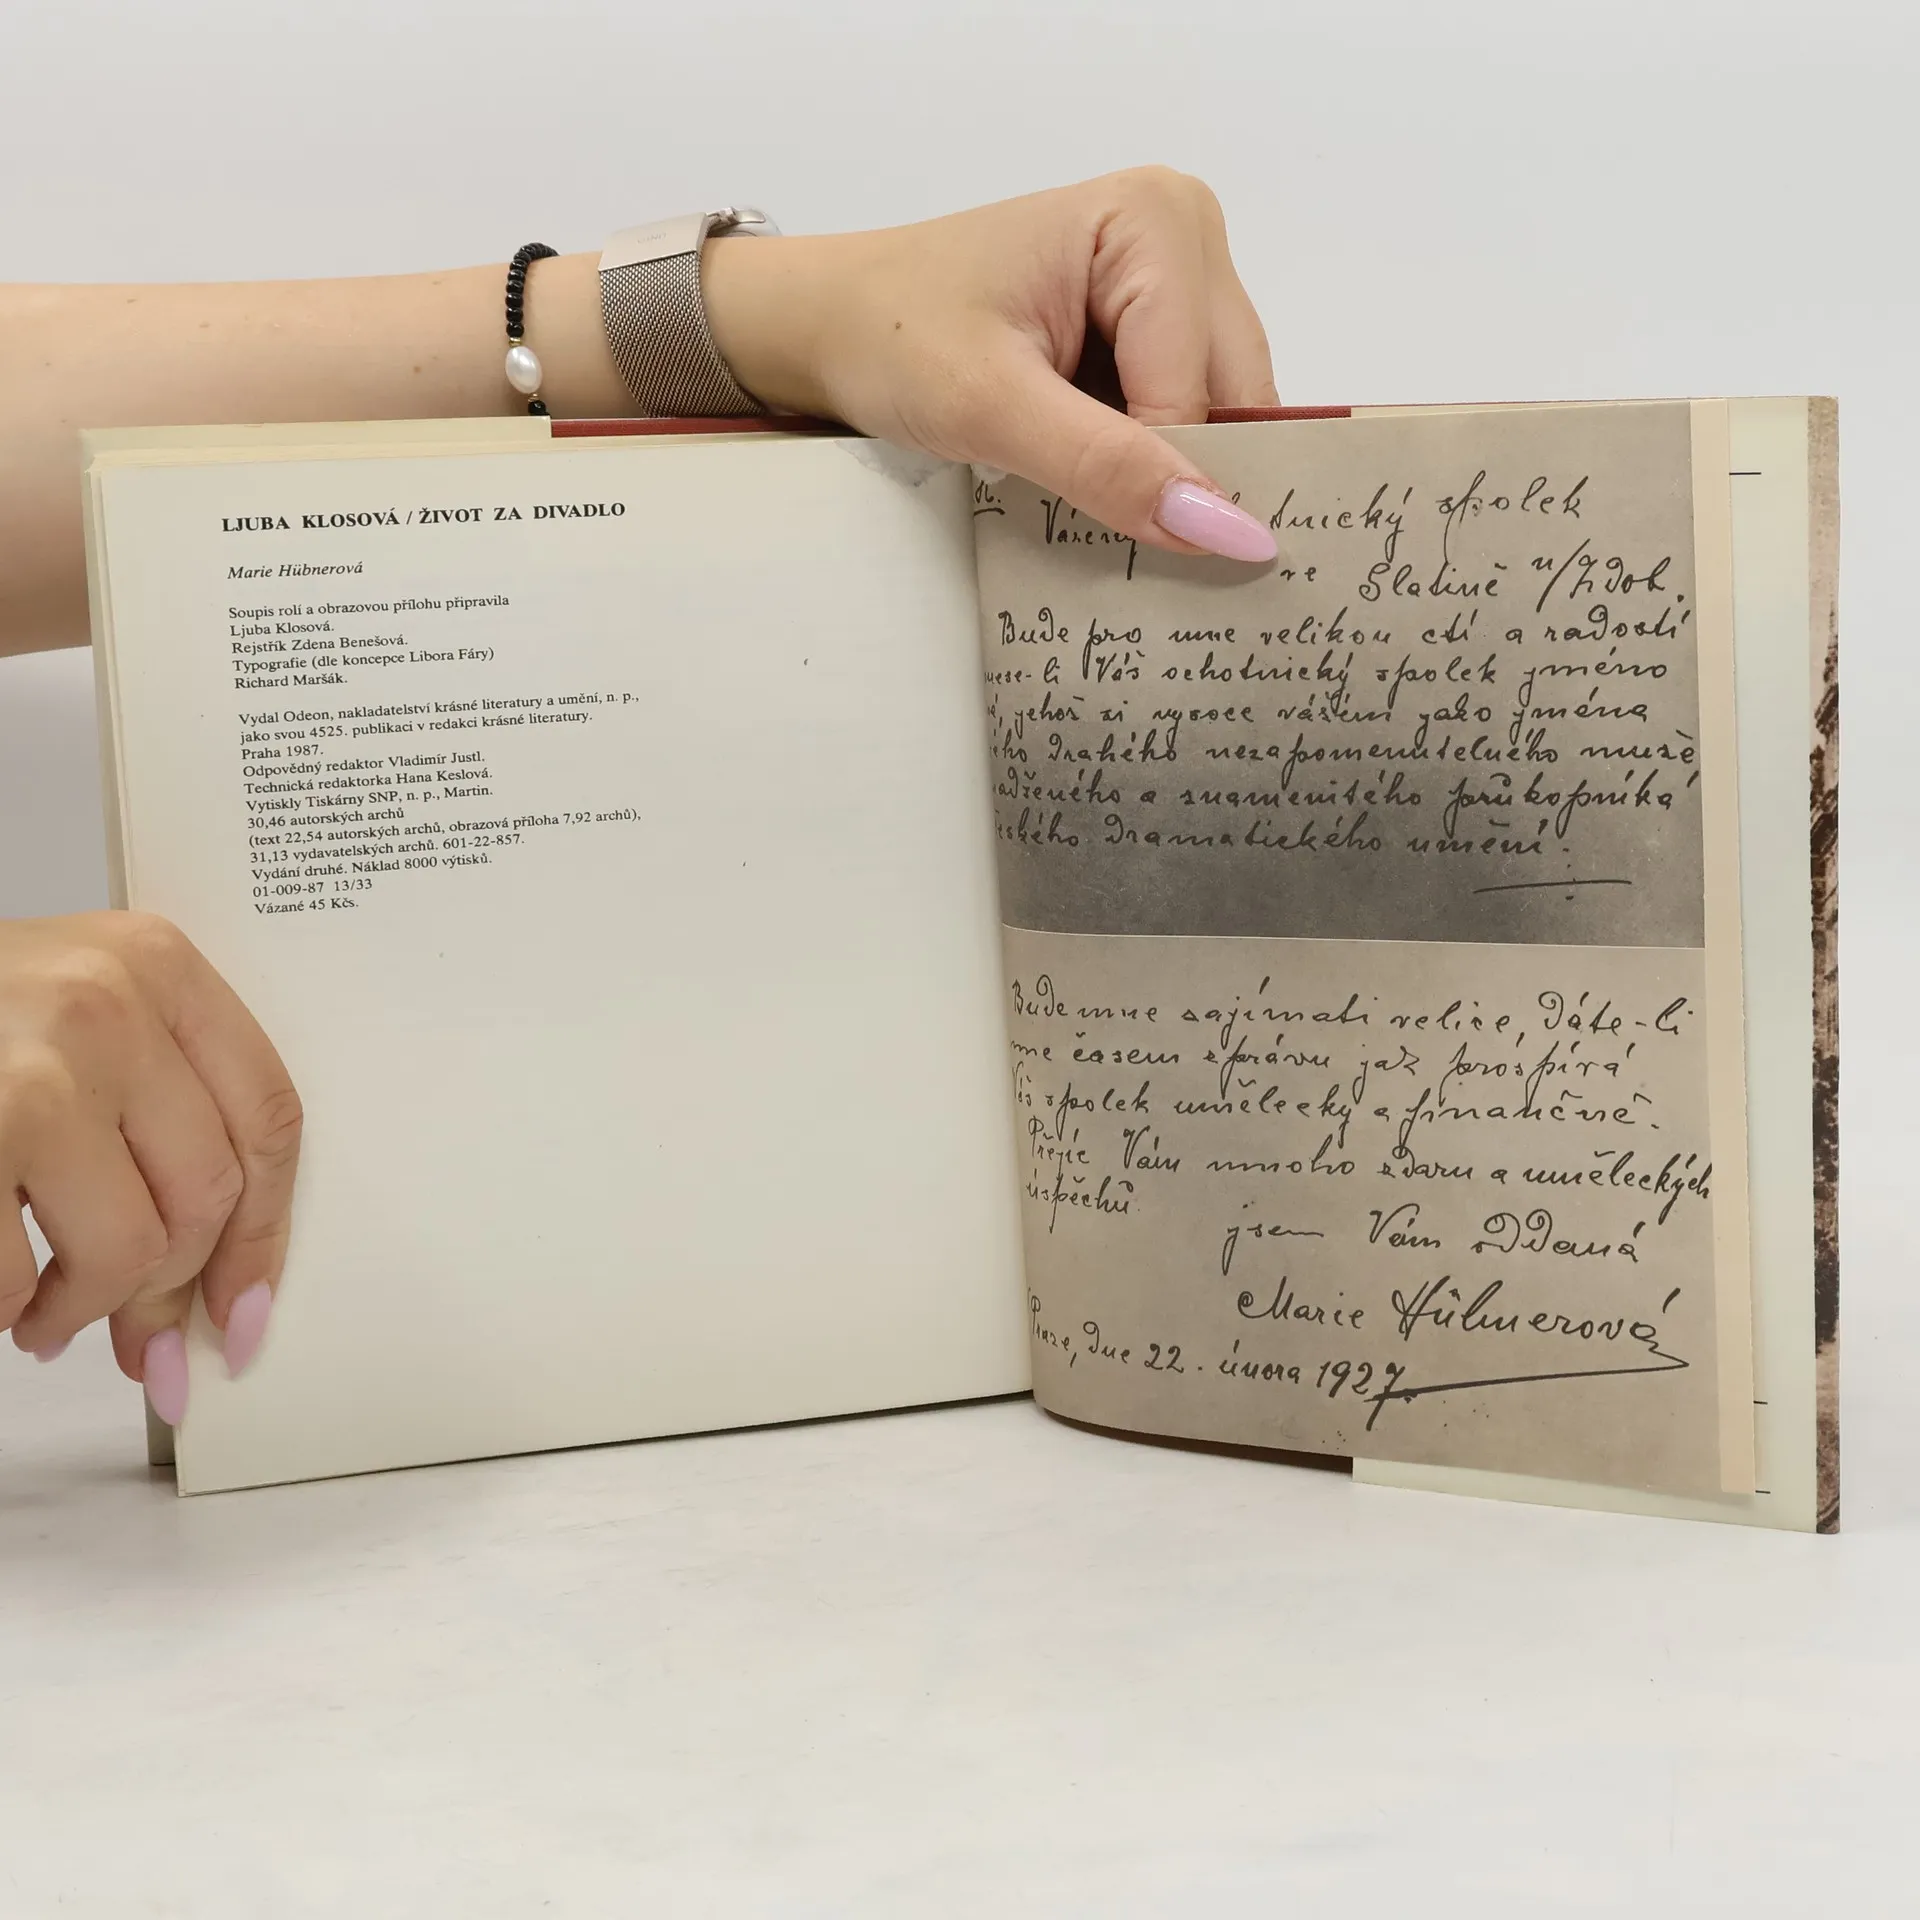 LJUBA KLOSOVÁ / ŽIVOT ZA DIVADLO
Marie Hübnerová
Soupis rolí a obrazovou přílohu připravila
Ljuba Klosová.
Rejstřík Zdena Benešová.
Typografie (dle koncepce Libora Fáry)
Richard Maršák.
Vydal Odeon, nakladatelství krásné literatury a umění, n. p.,
jako svou 4525. publikaci v redakci krásné literatury.
Praha 1987.
Odpovědný redaktor Vladimír Justl.
Technická redaktorka Hana Keslová.
Vytiskly Tiskárny SNP, n. p., Martin.
30,46 autorských archů
(text 22,54 autorských archů, obrazová příloha 7,92 archů),
31,13 vydavatelských archů. 601-22-857.
Vydání druhé. Náklad 8000 výtisků.
01-009-87 13/33
Vázané 45 Kčs.
spolek
ve Slatině n/Zdob.
Bude pro mne velikou ctí a radostí
Váš ochotnický spolek jméno
jehož si vysoce vážím jako jména
drahého nezapomenutelného muže
a znamenitého průkopníka
dramatického umění.
Bude mne zajímati velice, dáte-li
mne časem zprávu jak prospívá
Váš spolek umělecky a finančně.
Přejíc Vám mnoho zdaru a uměleckých
úspěchů
jsem Vám oddaná
Marie Hübnerová
Praze, dne 22. února 1927.